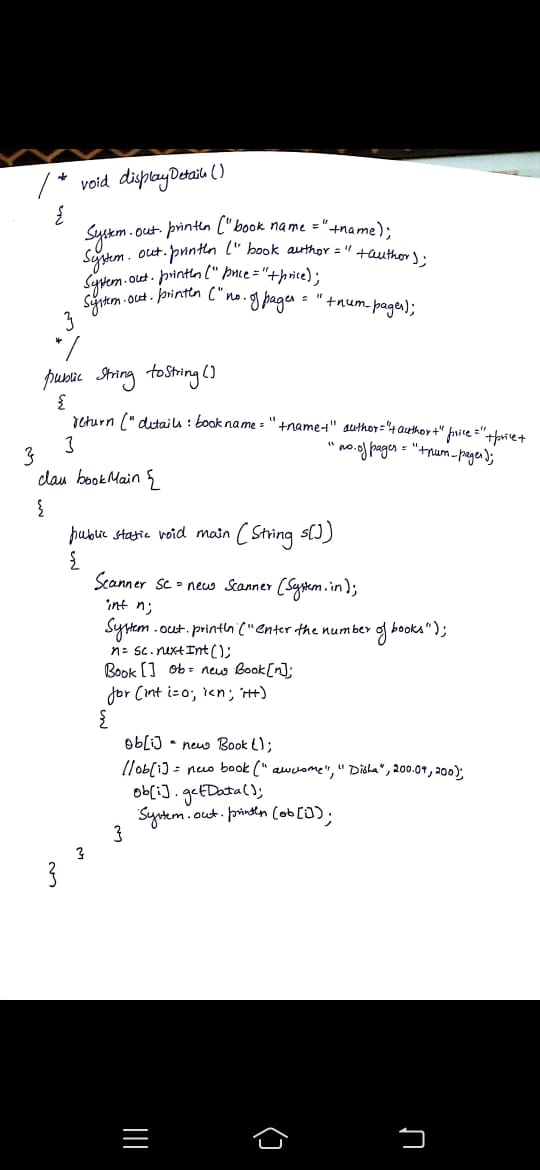 /* void displayDetails()
{
System.out.println("book name ="+name);
System.out.println(" book author =" +author);
System.out.println(" price ="+price);
System.out.println ("no.of pages = "+num-pages);
}
*/
public String toString()
{
return ("details : book name = "+name+" author="+author+" price ="+price+
"no.of pages = "+num-pages);
}
}
class bookMain {
{
public static void main (String s[])
{
Scanner sc = new Scanner (System.in);
int n;
System.out.println("enter the number of books");
n= sc.nextInt();
Book [] ob = new Book[n];
for (int i=0; i<n; i++)
{
ob[i] = new Book();
//ob[i] = new book("awesome", "Disha", 200.09, 200);
ob[i].getData();
System.out.println(ob[i]);
}
}
}